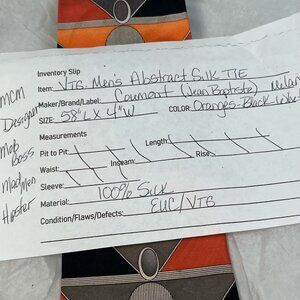 MCM
Designer
Mob
Boss
Mad Men
Hipster
Inventory Slip
Item: VTG Men's Abstract Silk TIE
Maker/Brand/Label: Caumont (Jean Baptiste) Milan
SIZE: 58"L x 4"W COLOR: Oranges-Black-White
Measurements
Pit to Pit: Length: 
Waist: Inseam: Rise:
Sleeve:
Material: 100% Silk
Condition/Flaws/Defects: EUC/VTG